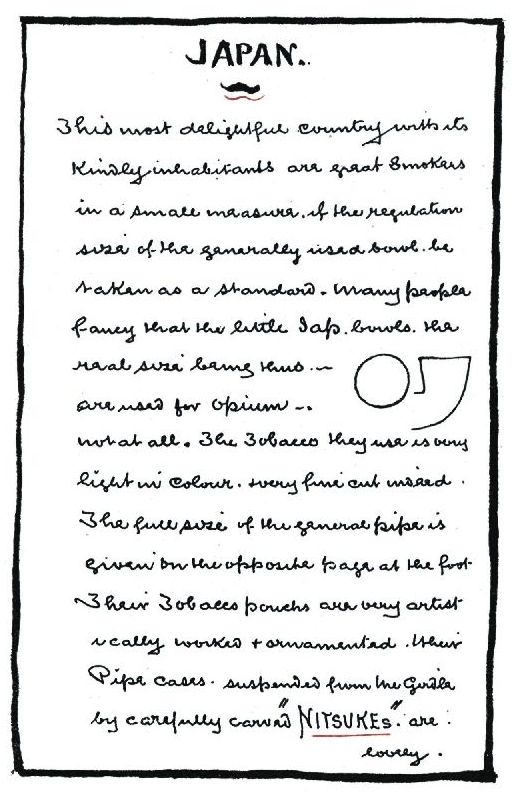 JAPAN.
This most delightful country with its
Kindly inhabitants are great Smokers
in a small measure. if the regulation
size of the generally used bowl. be
taken as a standard. Many people
fancy that the little Jap. bowls. the
real size being thus. —
are used for Opium —.
not at all. The Tobacco they use is very
light in colour. + very fine cut indeed.
The full size of the general pipe is
given on the opposite page at the foot
Their Tobacco pouchs are very artist
ically worked + ornamented. their
Pipe cases. suspended from the Girdle
by carefully carved "NITSUKEs". are.
lovely.